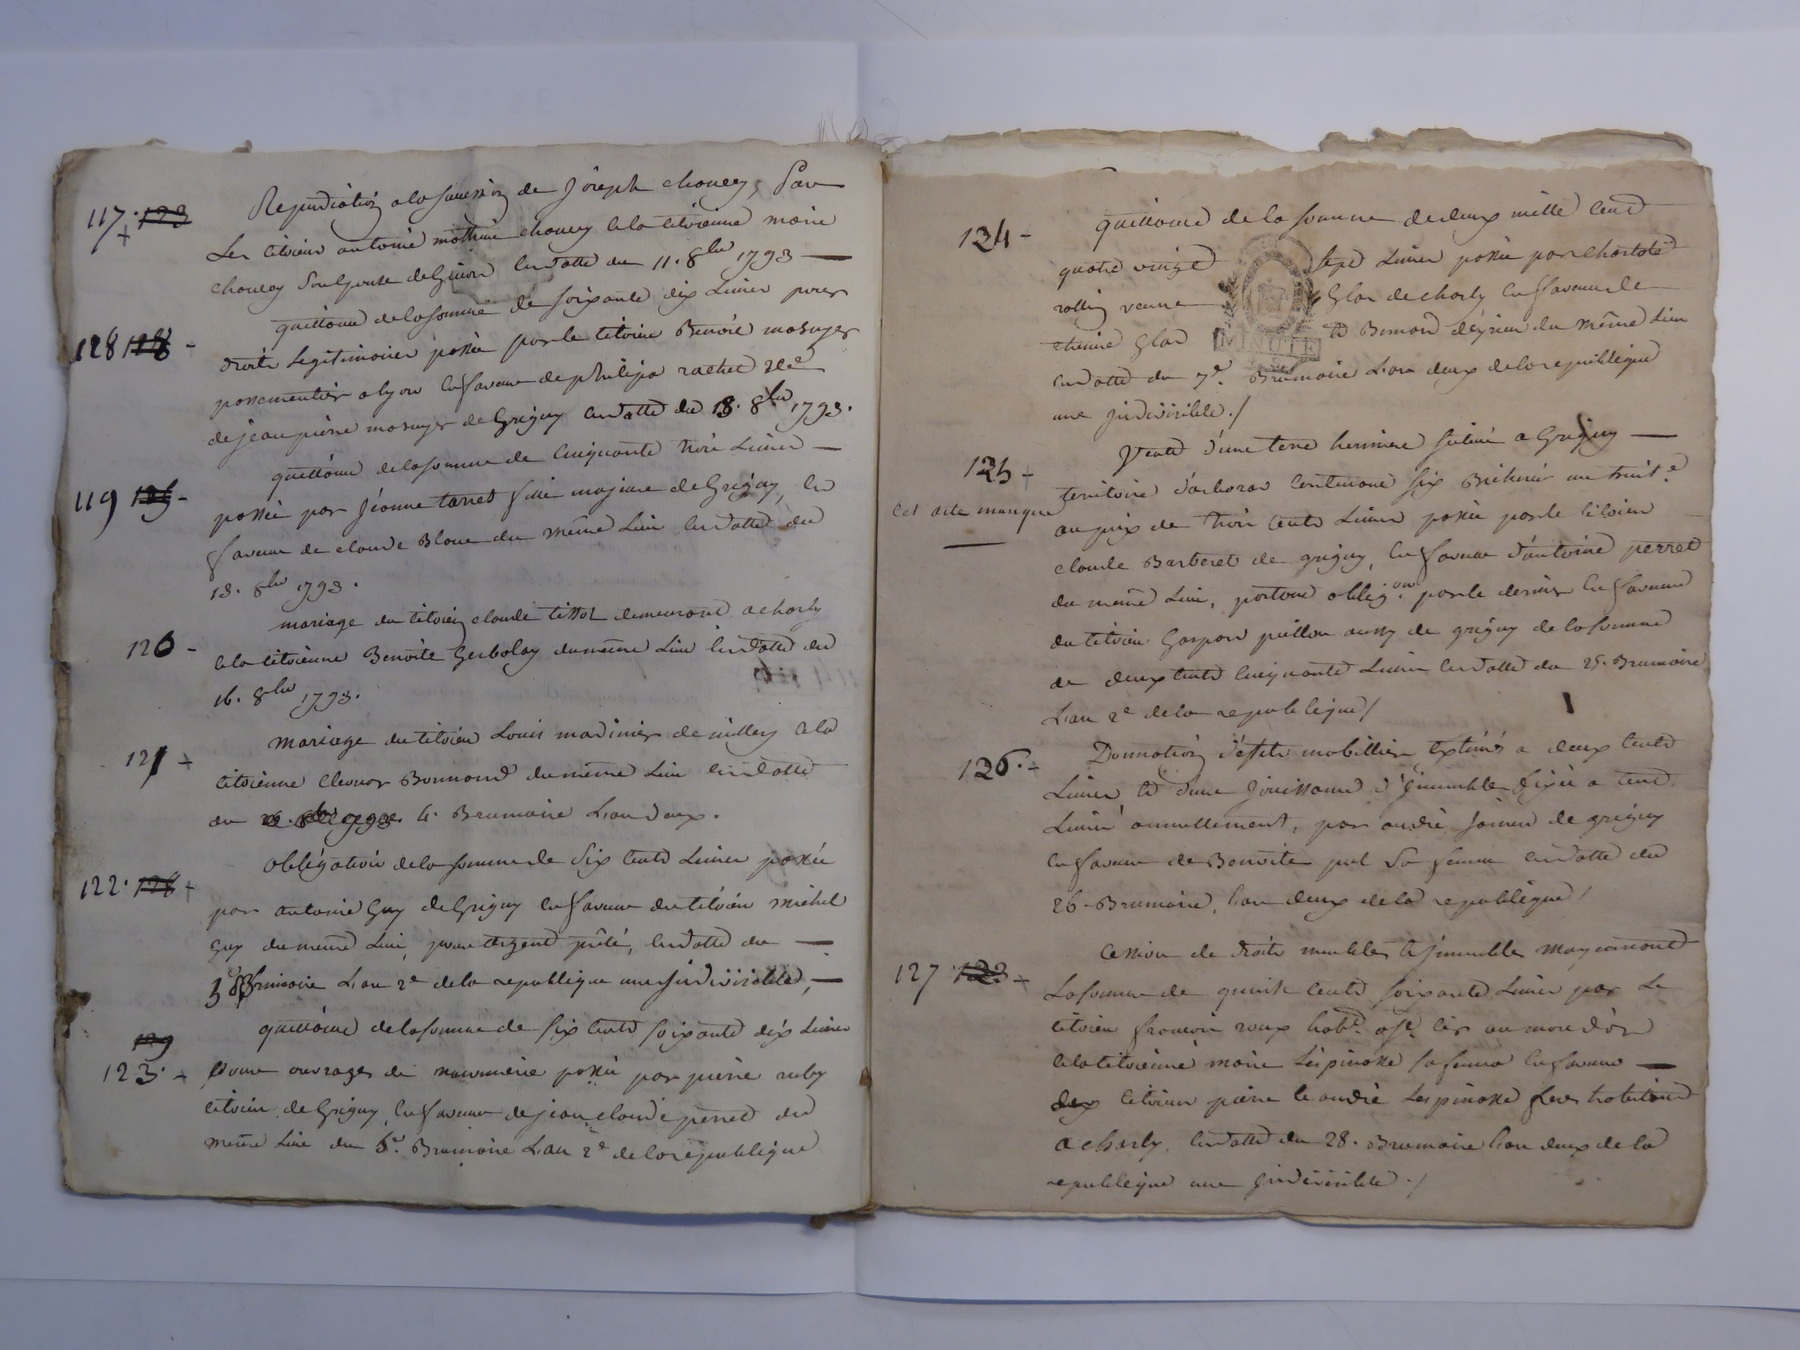 117. 123 Repudiation a la succession de Joseph chouey, Par
Les citoien antoine mathieu chouey & la citoienne marie
chouey Son Epouse de Givors en datte du 11. 8bre 1793
128 118 - quittance de la somme de soixante dix Livres pour
droits Legitimaires passée par le citoien Benoit masuyer
passementier a lyon en faveur de philipa rachet
de jean pierre masuyer de Grigny en datte du 13. 8bre 1793.
119 125 - quittance de la somme de cinquante trois Livres
passée par jeanne tarret fille majeure de Grigny, en
faveur de claude Blanc du même Lieu en datte du
13. 8bre 1793.
120 - mariage du citoien claude tissot demeurant a charly
& la citoienne Benoite Gerbolay du même Lieu en datte du
16. 8bre 1793.
121 + mariage du citoien Louis madinier de millery & la
citoienne Eleonor Bonnand du même Lieu en datte
du 4. Brumaire L'an deux.
122. 128 + obligation de la somme de six cents Livres passée
par antoine Guy de Grigny en faveur du citoien michel
Guy du même Lieu, pour argent prêté, en datte du
Brumaire L'an 2e de la republique une & indivisible,
129 quittance de la somme de six cents soixante dix Livres
123. + pour ouvrages de passée par pierre ruby
citoien de Grigny, en faveur de jean claude perret du
même Lieu du 6e. Brumaire L'an 2e de la republique
124 - quittance de la somme de deux mille cent
quatre vingt sept Livres passée par charlote
rollin veuve Glas de charly en faveur de
etienne Glas MINUTE et Bonnard du même Lieu
en datte du 7e. Brumaire L'an deux de la republique
une indivisible ./
125 + Vente d'une terre herminée située a Grigny
territoire d'arboras contenant six Bicherées
Cet acte manque au prix de trois cents Livres passée par le citoien
claude Barberet de grigny, en faveur d'antoine perret
du même Lieu, portant oblig.on par le dernier en faveur
du citoien Gaspard aussy de grigny de la somme
de deux cents cinquante Livres en datte du 25. Brumaire
L'an 2e de la republique /
126. + Donnation d'effets mobilliers Estimés a deux cents
Livres et d'une jouissance d'immeuble fixée a cent
Livres annuellement, par andré de grigny
en faveur de Benoite sa femme en datte du
26 Brumaire, l'an deux de la republique /
127 123 + Cession de droits meubles & immeubles moyennant
La somme de quinze cents soixante Livres par Le
citoien françois roux hab.t a st cir au mont d'or
& la citoienne marie Lespinasse sa femme en faveur
des citoiens pierre & andré Lespinasse freres habitants
a charly, en datte du 28. Brumaire l'an deux de la
republique une indivisible ./